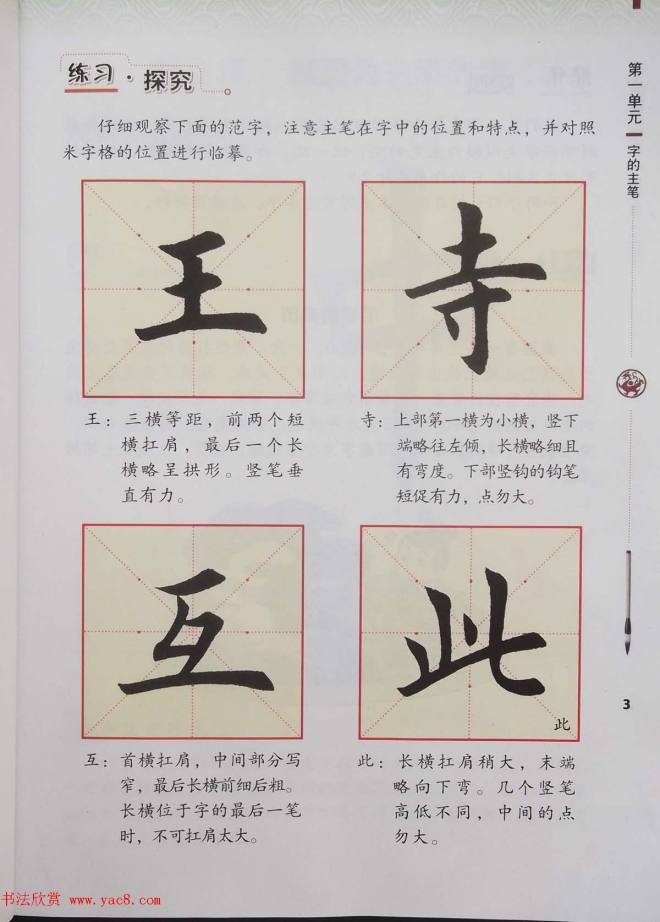 练习·探究
仔细观察下面的范字，注意主笔在字中的位置和特点，并对照
米字格的位置进行临摹。
王
寺
王：三横等距，前两个短
横扛肩，最后一个长
横略呈拱形。竖笔垂
直有力。
寺：上部第一横为小横，竖下
端略往左倾，长横略细且
有弯度。下部竖钩的钩笔
短促有力，点勿大。
互
此
此
互：首横扛肩，中间部分写
窄，最后长横前细后粗。
长横位于字的最后一笔
时，不可扛肩太大。
此：长横扛肩稍大，末端
略向下弯。几个竖笔
高低不同，中间的点
勿大。
第一单元 字的主笔
3
书法欣赏 www.yac8.com